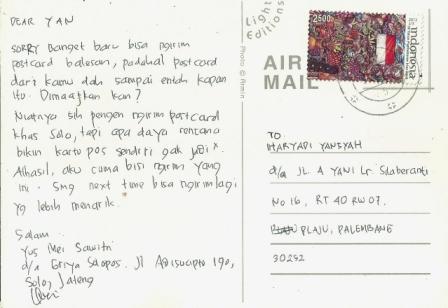 DEAR YAN
SORRY Banget baru bisa ngirim
postcard balasan, padahal postcard
dari kamu dah sampai entah kapan
itu. Dimaafkan kan?
Niatnya sih pengen ngirim postcard
khas Solo, tapi apa daya rencana
bikin kartu pos sendiri gak jadi x.
Alhasil, aku cuma bisi ngirim yang
ini. Smg next time bisa ngirim lagi
yg lebih menarik.
Salam
Yus Mei Sawitri
d/a Griya Solopos. Jl Adisucipto 190,
Solo, Jateng
Light
Editions
Photo © Armin
AIR
MAIL
2500
indonesia
TO
HARYADI YANSYAH
d/a JL. A YANI Lr. Silaberanti
No 16, RT 40 RW 07.
PLAJU, PALEMBANG
30252